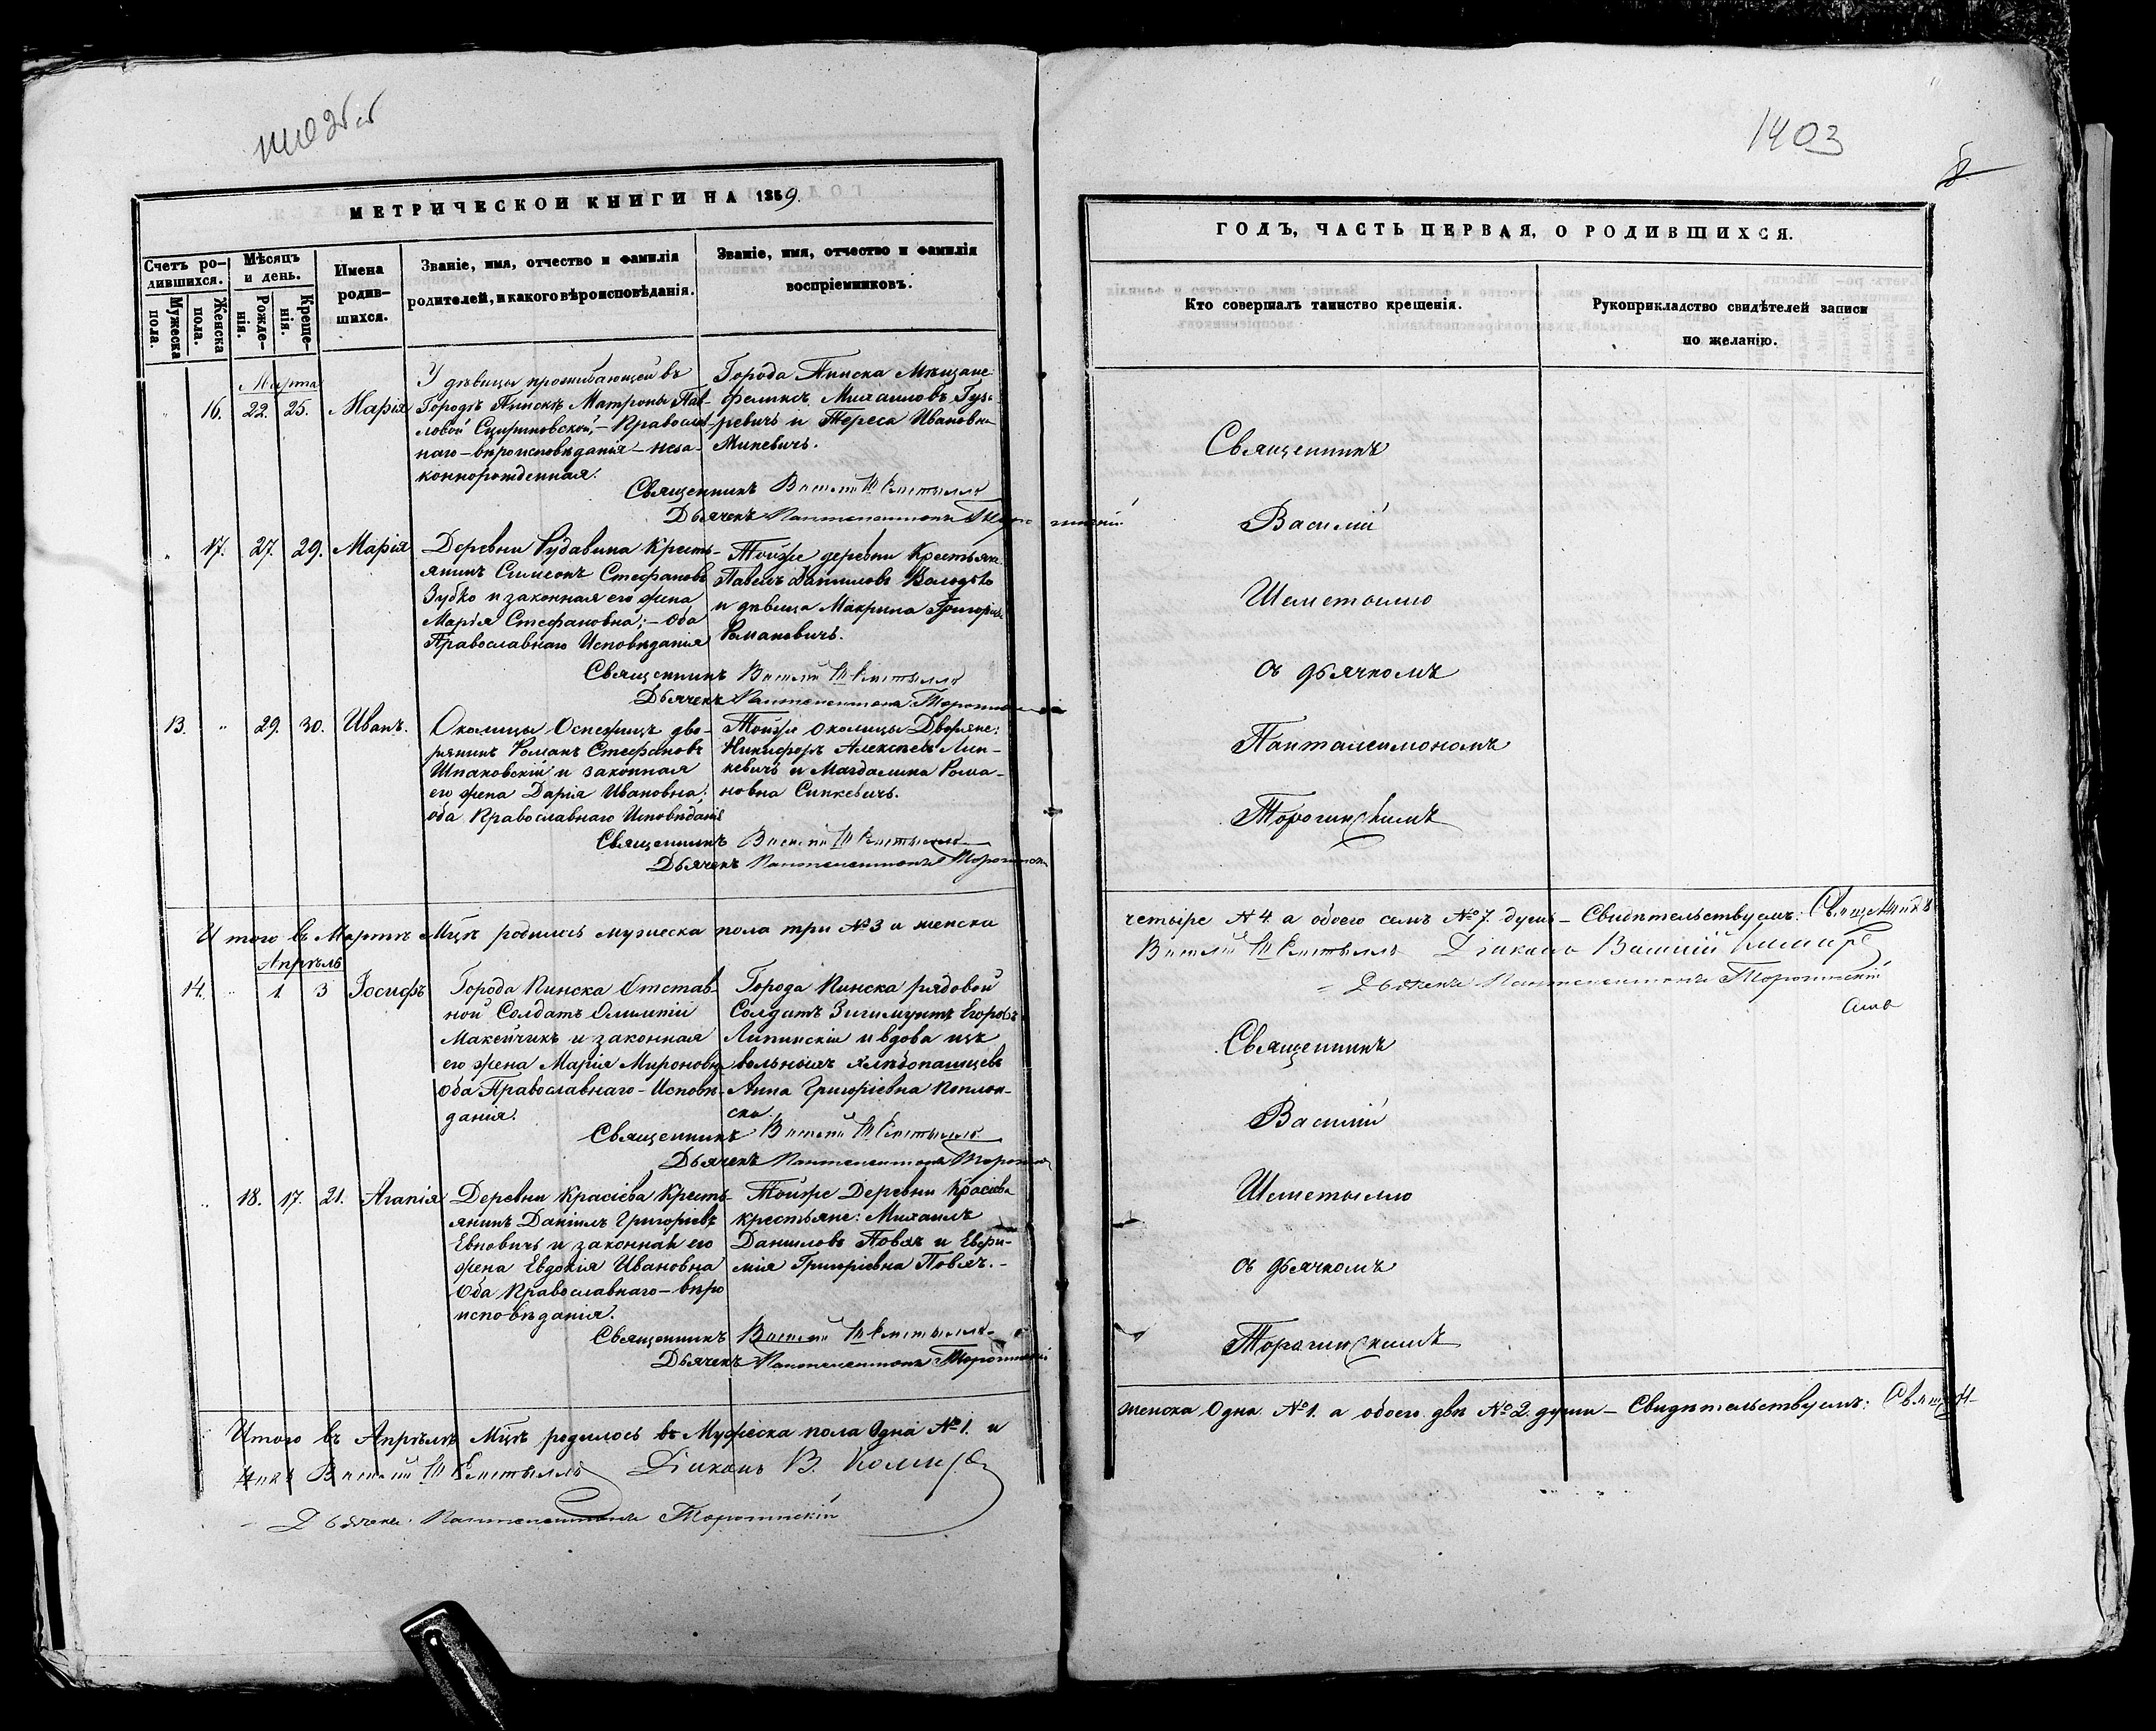 МЕТРИЧЕСКОЙ КНИГИ НА 1859.
Счетъ родившихся.
Мужеска пола.
Женска пола.
Мѣсяцъ и день.
Рожденія.
Крещенія.
Имена родившихся.
Званіе, имя, отчество и фамилія
родителей, и какого вѣроисповѣданія.
Званіе, имя, отчество и фамилія
воспріемниковъ.
Марта
16. 22. 25. Марія
У дѣвицы проживающей въ
Городѣ Пинскѣ Матроны Пав-
ловой – Православ-
наго – вѣроисповѣданія – неза-
коннорожденная.
Города Пинска Мѣщане
Феликсъ Михаиловъ Гуз-
ревичъ и Тереса Ивановна
Миневичъ.
Священникъ Василій Шеметылло
Дьячекъ Пантелеимонъ
17. 27. 29. Марія
Деревни Рудавина Кресть-
янинъ Симеонъ Стефановъ
Зубко и законная его жена
Марія Стефановна; – оба
Православнаго Исповѣданія
Тойже деревни Крестьяне
Павелъ Даниловъ
и дѣвица Макрина
Романовичъ.
Священникъ Василій Шеметылло
Дьячекъ Пантелеимонъ
13. " 29. 30. Иванъ.
Околицы Оснежицъ дво-
рянинъ Романъ Стефановъ
Шпаковскій и законная
его жена Дарія Ивановна:
оба Православнаго Исповѣданія
Тойже околицы Дворяне:
Никифоръ Алексѣевъ Лин-
кевичъ и Магдалина Рома-
новна Синкевичъ.
Священникъ Василій Шеметылло
Дьячекъ Пантелеимонъ
Итого въ Мартѣ Мцѣ родилось мужеска пола три №3 а женска
Апрѣль
14. " 1. 3 Іосифъ
Города Пинска Отстав-
ной Солдатъ
Макейчикъ и законная
его жена Марія Мироновна
Оба Православнаго – Исповѣ-
данія.
Города Пинска рядовой
Солдатъ Зигимунтъ Егоровъ
Липинскій и вдова изъ
вольныхъ хлѣбопашцевъ
Анна Григоріевна
ска.
Священникъ Василій Шеметылло
Дьячекъ Пантелеимонъ
" 18. 17. 21. Агапія
Деревни Красіева Кресть-
янинъ Даніилъ Григоріевъ
Евновичъ и законная его
жена Евдокія Ивановна
Оба Православнаго – вѣро
исповѣданія.
Тойже Деревни Красіева
крестьяне: Михаилъ
Даниловъ Повхъ и Евфи-
мія Григоріевна Повхъ. –
Священникъ Василій Шеметылло
Дьячекъ Пантелеимонъ
Итого въ Апрѣлѣ Мцѣ родилось въ Мужеска пола Одна №1. и
никъ Василій Шеметылло Діаконъ В.
Дьячекъ Пантелеимонъ
1403
ГОДЪ, ЧАСТЬ ПЕРВАЯ, О РОДИВШИХСЯ.
Кто совершалъ таинство крещенія.
Рукоприкладство свидѣтелей записи
по желанію.
Священникъ
Василій
Шеметылло
съ дьячкомъ
Панталеимономъ
четыре №4. а обоего семъ №7. душъ – Свидѣтельствуемъ: Священникъ
Василій Шеметылло Діаконъ Василій
Дьячекъ Пантелеимонъ
Священникъ
Василій
Шеметылло
съ дьячкомъ
женска Одна №1. а обоего двѣ №2. души – Свидѣтельствуемъ: Священ-